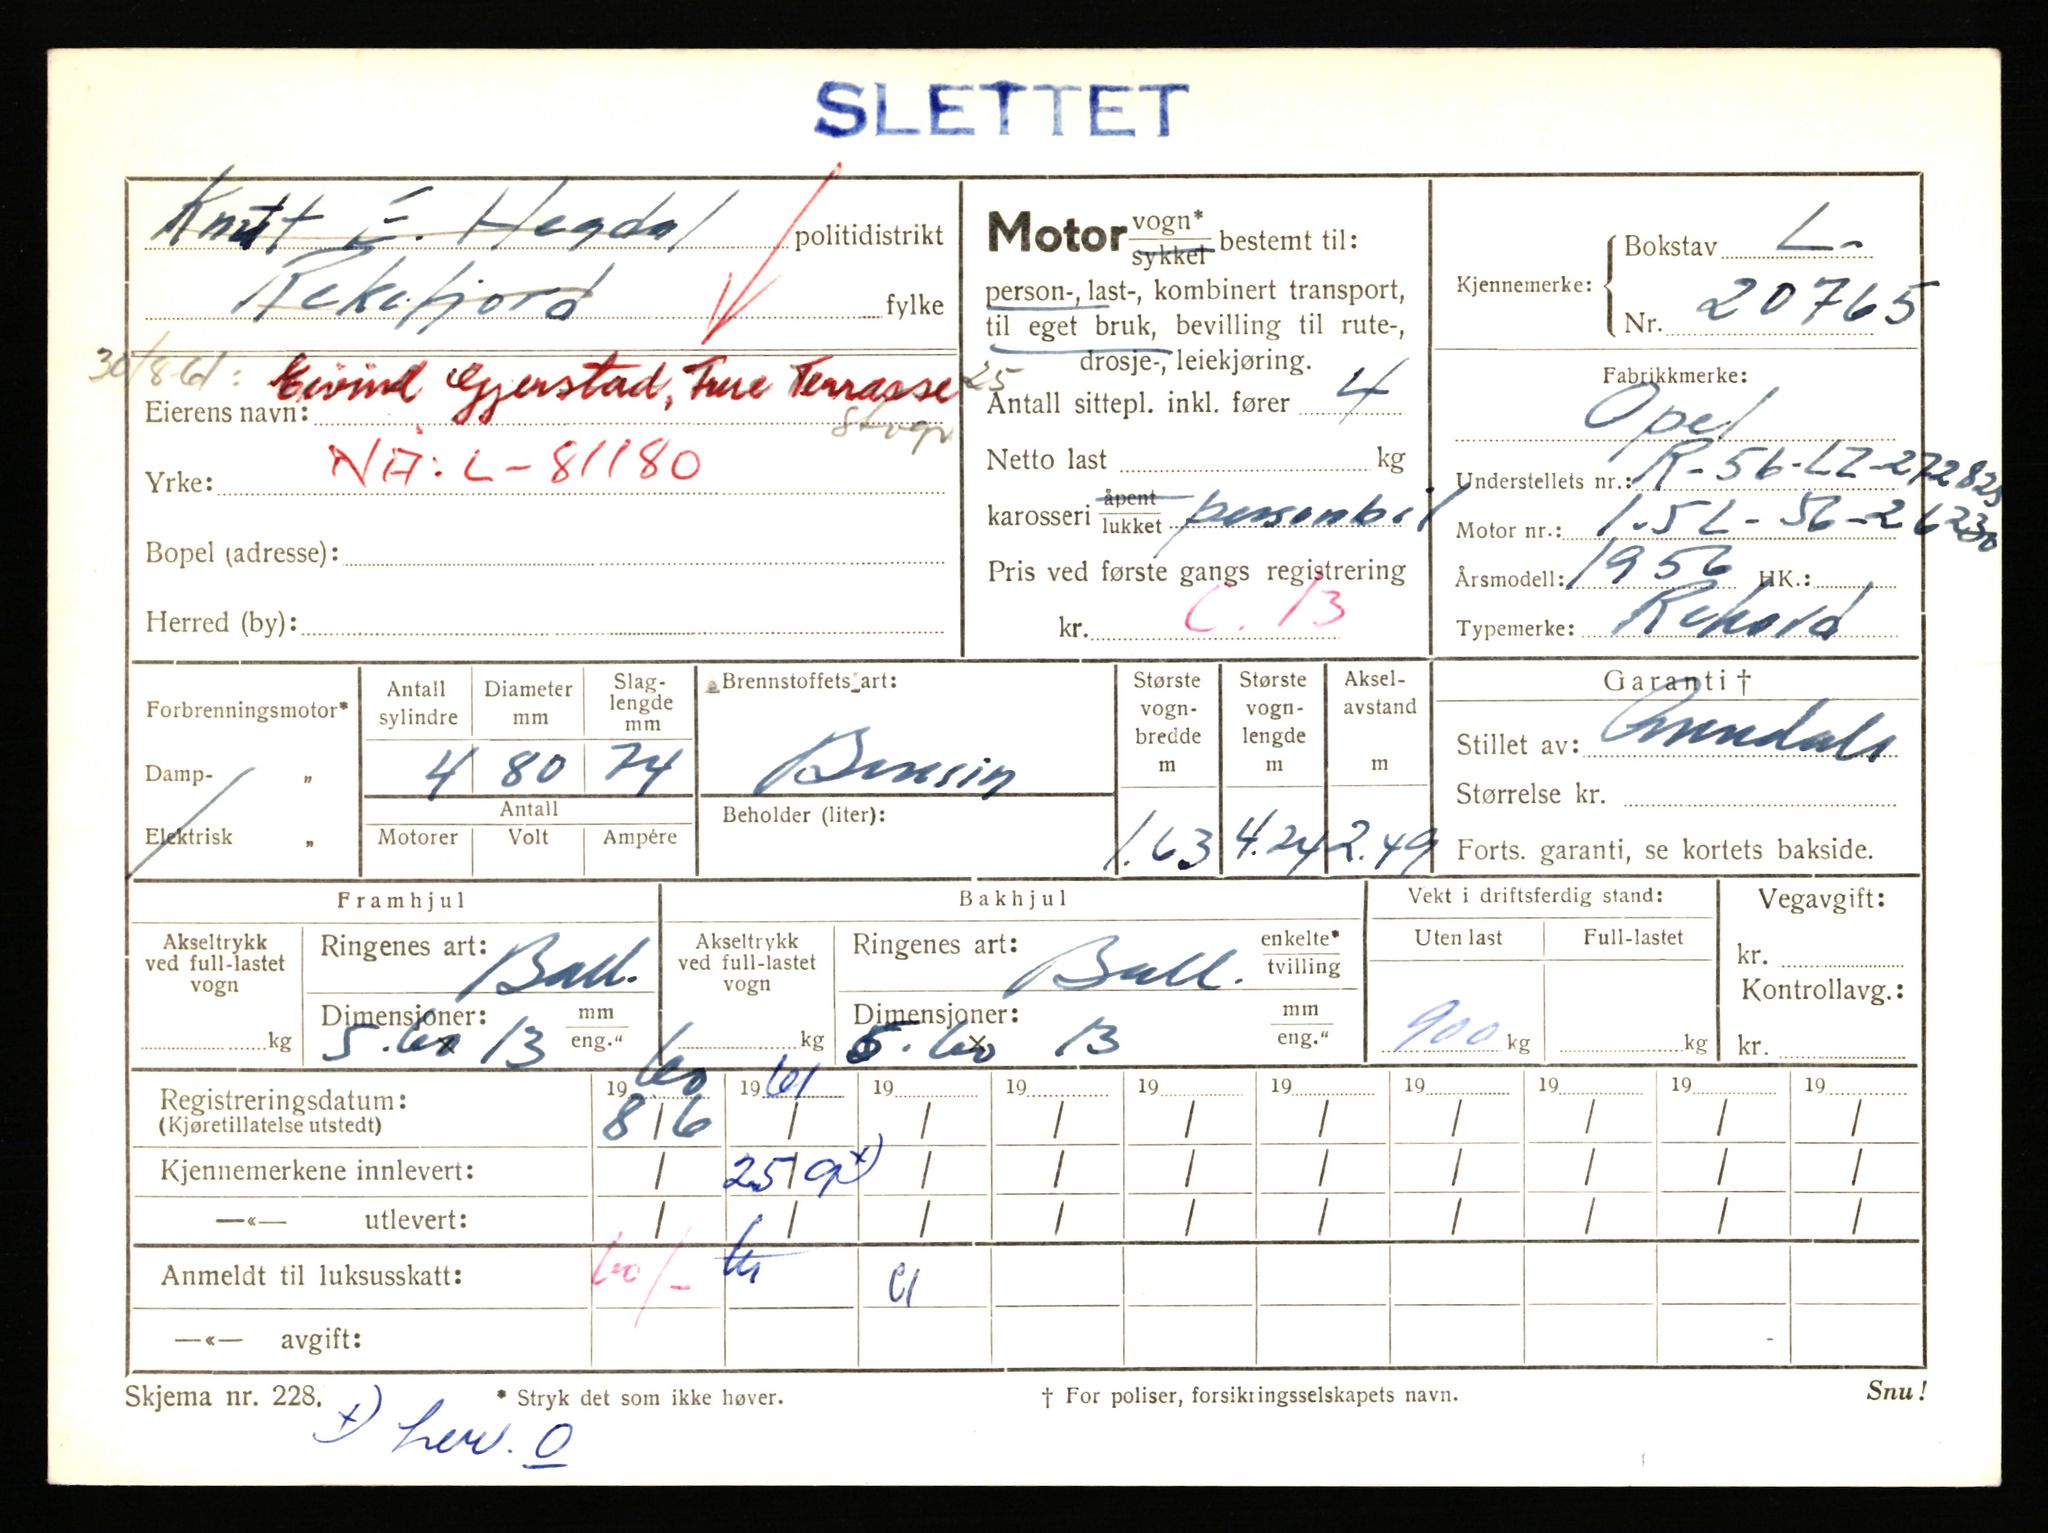 SLETTET
Knut E. Hegdal politidistrikt
Rekefjord fylke
30/8-61: Eivind Gjerstad, Ture Terrasse 25
Eierens navn: Stvgr
Yrke: NÅ: L-81180
Bopel (adresse):
Herred (by):
Motor vogn* / sykkel bestemt til:
person-, last-, kombinert transport,
til eget bruk, bevilling til rute-,
drosje-, leiekjøring.
Antall sittepl. inkl. fører 4
Netto last kg
karosseri åpent / lukket personbil
Pris ved første gangs registrering
kr. C. 13
Kjennemerke: Bokstav L-
Nr. 20765
Fabrikkmerke:
Opel
Understellets nr.: R-56-LZ-272825
Motor nr.: 1.5L-56-26230
Årsmodell: 1956 HK.:
Typemerke: Rekord
Forbrenningsmotor*
Damp- „
Elektrisk „
Antall sylindre Diameter mm Slag-lengde mm
4 80 74
Antall
Motorer Volt Ampére
Brennstoffets art:
Bensin
Beholder (liter):
Største vogn-bredde m Største vogn-lengde m Aksel-avstand m
1.63 4.24 2.49
Garanti †
Stillet av: Arendals
Størrelse kr.
Forts. garanti, se kortets bakside.
Framhjul
Akseltrykk ved full-lastet vogn
kg
Ringenes art: Ball.
Dimensjoner: mm / eng."
5.60 x 13
Bakhjul
Akseltrykk ved full-lastet vogn
kg
Ringenes art: Ball. enkelte* / tvilling
Dimensjoner: mm / eng."
5.60 x 13
Vekt i driftsferdig stand:
Uten last Full-lastet
900 kg kg
Vegavgift:
kr.
Kontrollavg.:
kr.
19 60 19 61 19 19 19 19 19 19 19 19
Registreringsdatum: 8/6 / / / / / / / / /
(Kjøretillatelse utstedt)
Kjennemerkene innlevert: / 25/9 x) / / / / / / / /
—«— utlevert: / / / / / / / / / /
Anmeldt til luksusskatt: 60/- 61
—«— avgift:
Skjema nr. 228. * Stryk det som ikke høver. † For poliser, forsikringsselskapets navn. Snu!
x) herv. 0